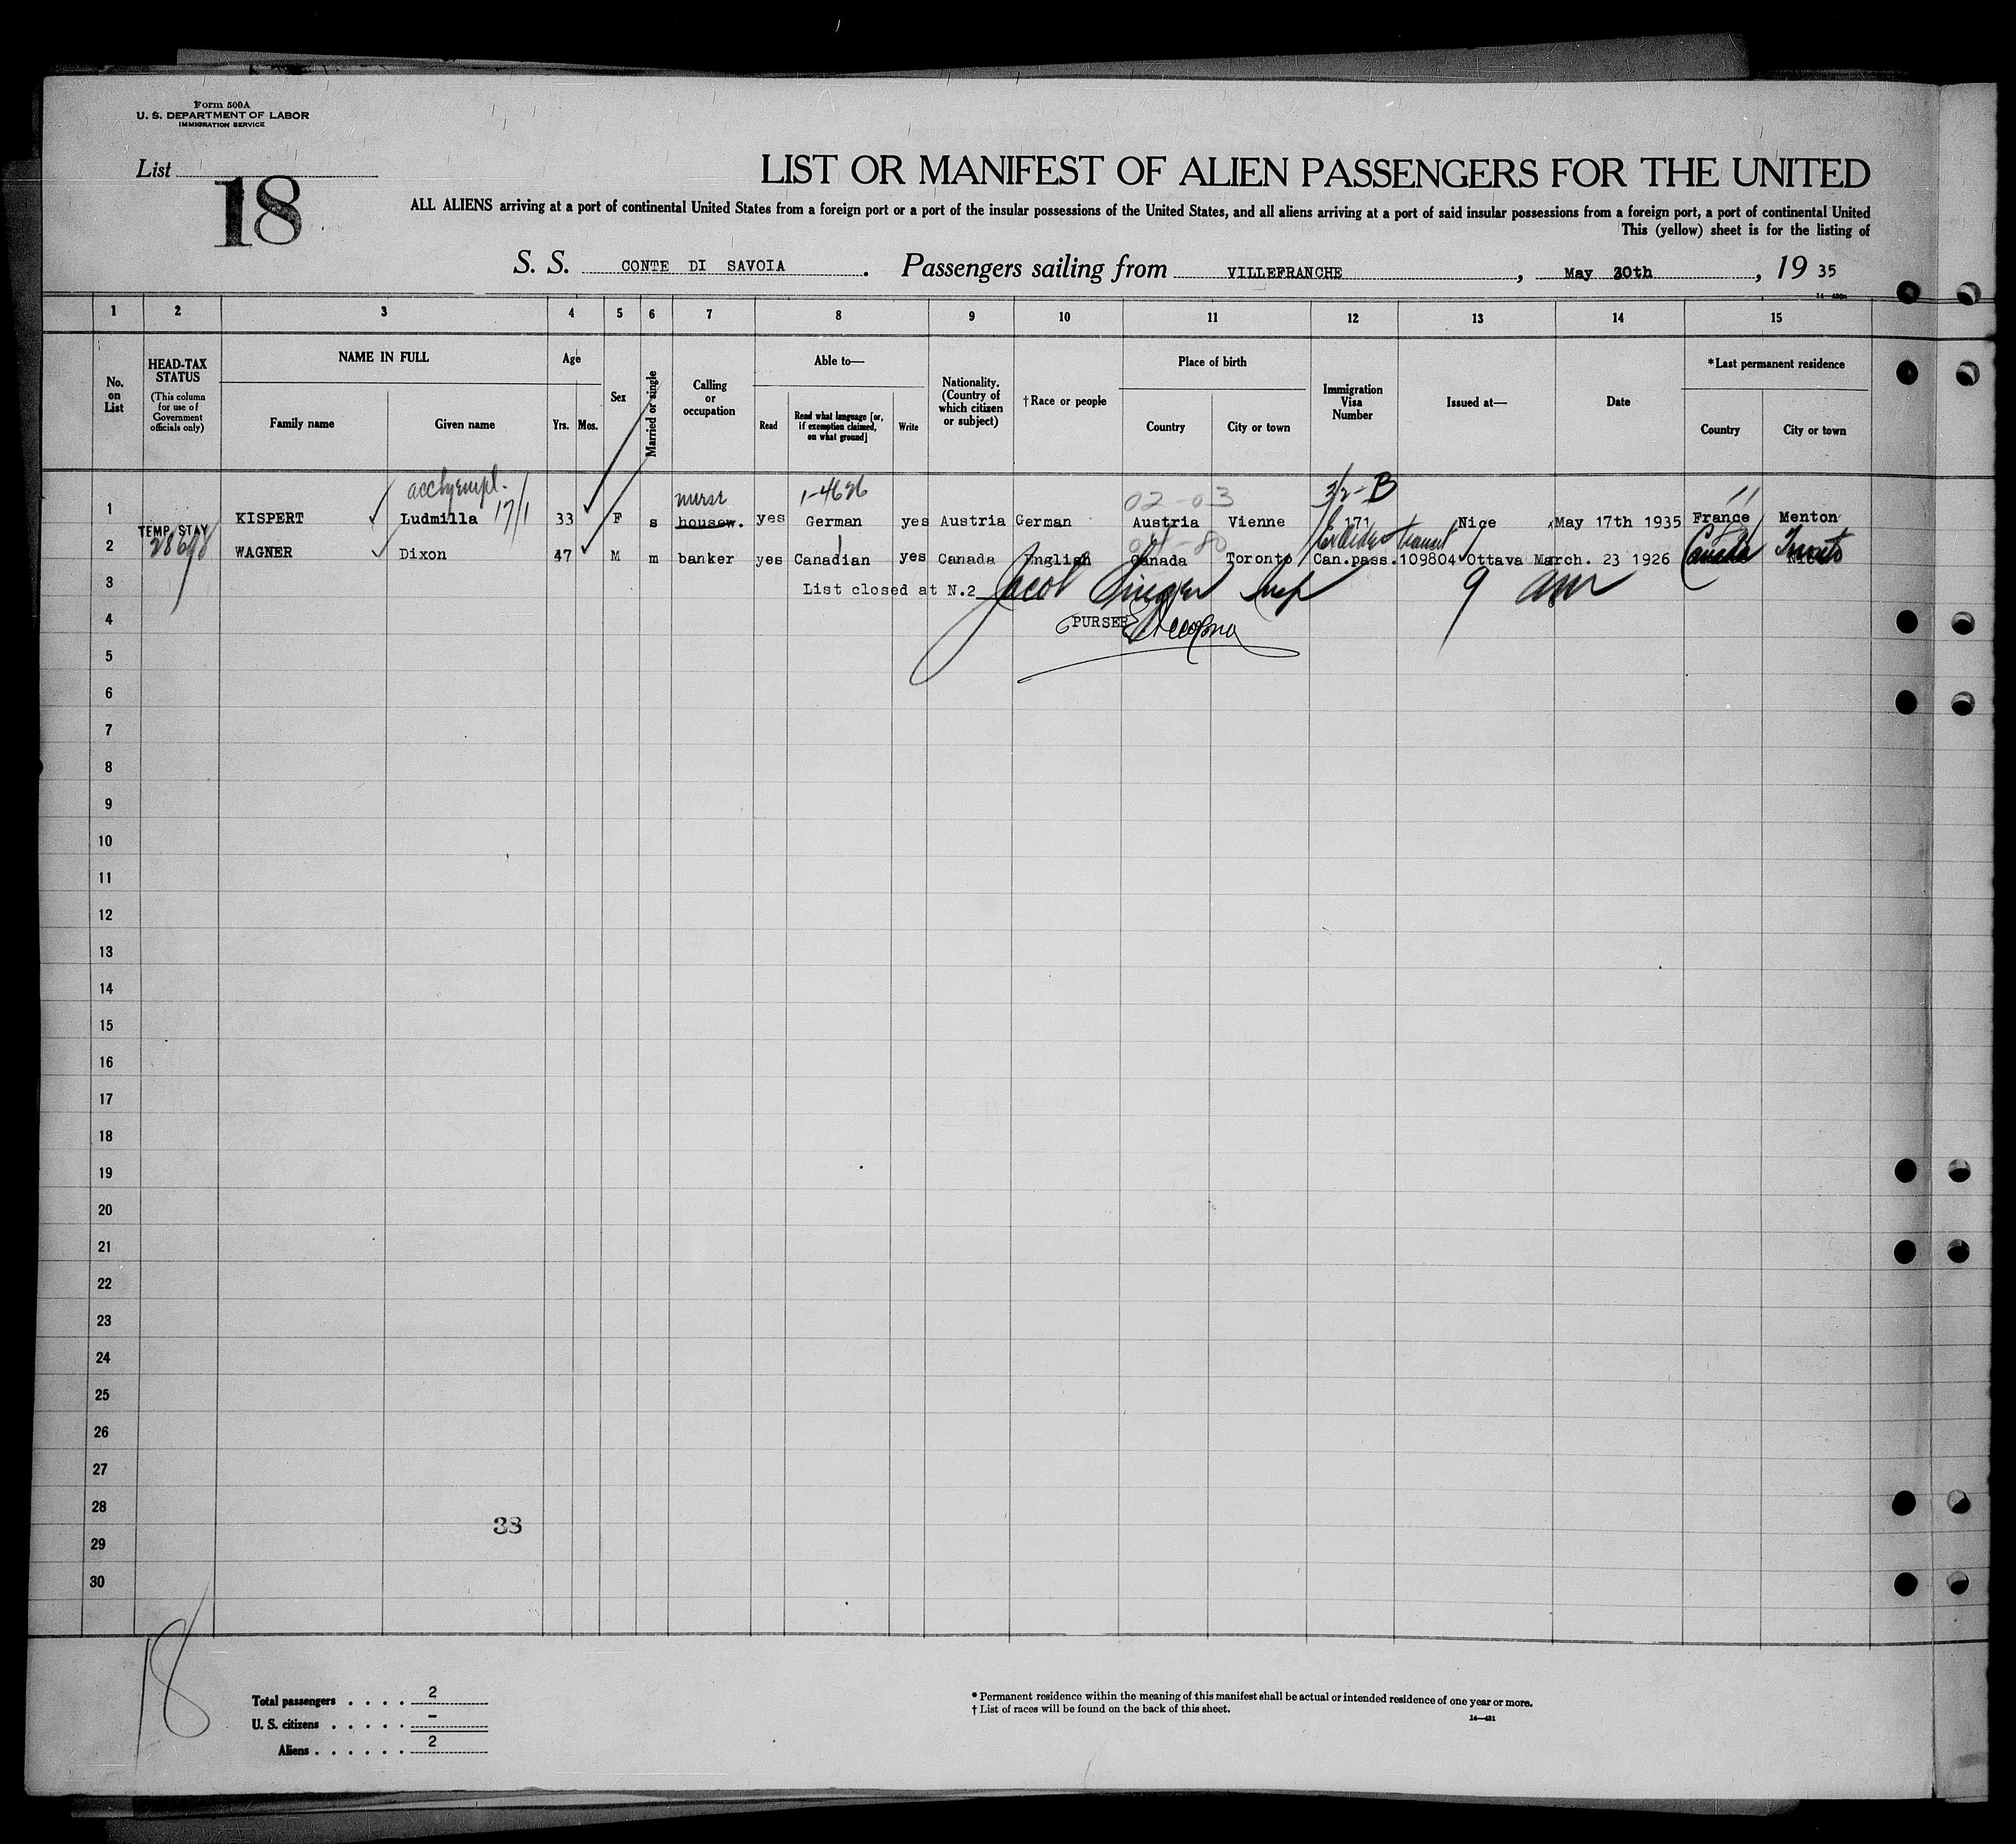 Form 500A
U. S. DEPARTMENT OF LABOR
IMMIGRATION SERVICE
List
18
LIST OR MANIFEST OF ALIEN PASSENGERS FOR THE UNITED
ALL ALIENS arriving at a port of continental United States from a foreign port or a port of the insular possessions of the United States, and all aliens arriving at a port of said insular possessions from a foreign port, a port of continental United
This (yellow) sheet is for the listing of
S. S. CONTE DI SAVOIA. Passengers sailing from VILLEFRANCHE, May 30th, 19 35
1 2 3 4 5 6 7 8 9 10 11 12 13 14 15
No. on List
HEAD-TAX STATUS
(This column for use of Government officials only)
NAME IN FULL
Family name Given name
Age
Yrs. Mos.
Sex
Married or single
Calling or occupation
Able to—
Read
Read what language [or, if exemption claimed, on what ground]
Write
Nationality. (Country of which citizen or subject)
†Race or people
Place of birth
Country City or town
Immigration Visa Number
Issued at—
Date
*Last permanent residence
Country City or town
nurse 1-4626 02-03 3/2-B
1 KISPERT Ludmilla 17/1 33 F s housew. yes German yes Austria German Austria Vienne 171 Nice May 17th 1935 France Menton
TEMP. STAY
transit Canada Toronto
2 WAGNER Dixon 47 M m banker yes Canadian yes Canada English Canada Toronto Can.pass.109804 Ottava March. 23 1926
3 List closed at N.2 Jacob Insp 9 am
4 PURSER
5
6
7
8
9
10
11
12
13
14
15
16
17
18
19
20
21
22
23
24
25
26
27
28
38
29
30
18
Total passengers . . . . 2
U. S. citizens . . . . . -
Aliens . . . . . . 2
* Permanent residence within the meaning of this manifest shall be actual or intended residence of one year or more.
† List of races will be found on the back of this sheet.
14—431